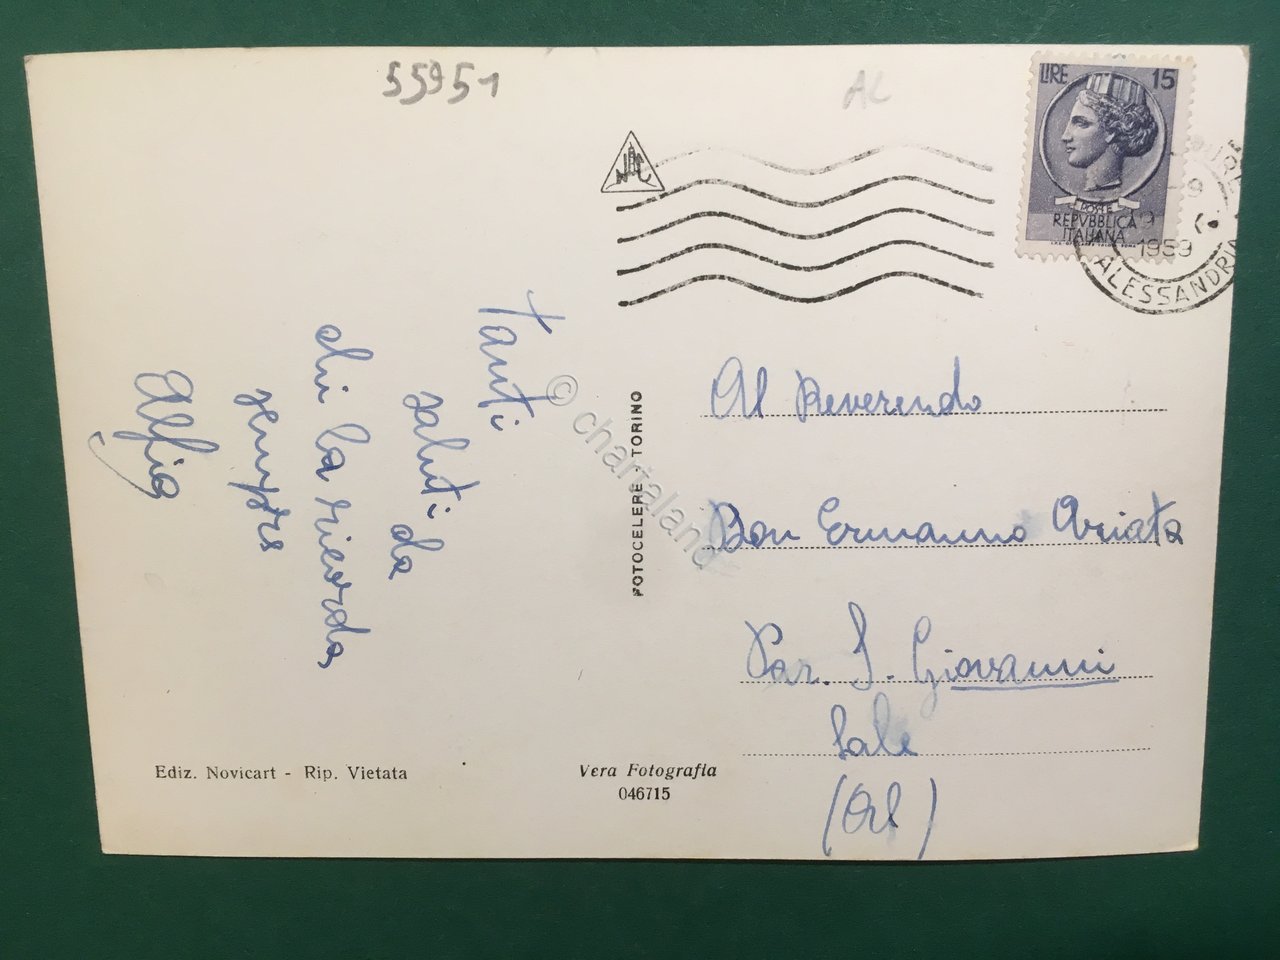 55951
AL
LIRE 15
POSTE
REPVBBLICA
ITALIANA
19
1959
ALESSANDRIA
Tanti
saluti da
chi la ricorda
sempre
Alfia
© chartaland
FOTOCELERE - TORINO
Al Reverendo
Don Ermanno Ariata
Par. S. Giovanni
Sale
(Al)
Ediz. Novicart - Rip. Vietata
Vera Fotografia
046715